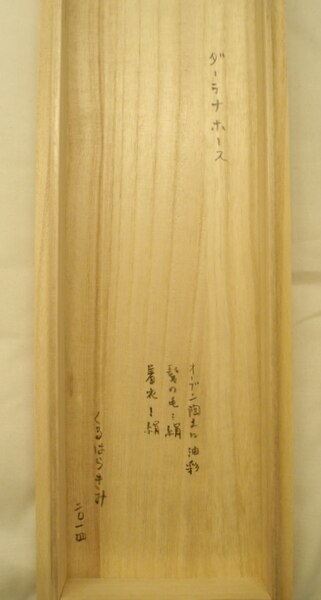 ダーラナホース
オーブン陶土に油彩
髪の毛:絹
着衣:絹
くるはらきみ
二〇一四